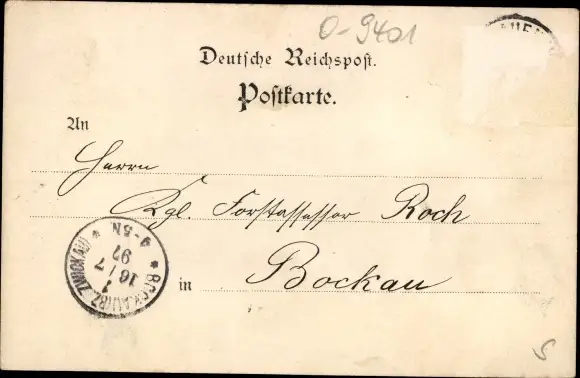 0-9401
Deutsche Reichspost.
Postkarte.
An
Herrn
Kgl. Forstassessor Roch
in Bockau
* BOCKAU BZ. ZWICKAU *
1
16/7
97
4-5N.
S